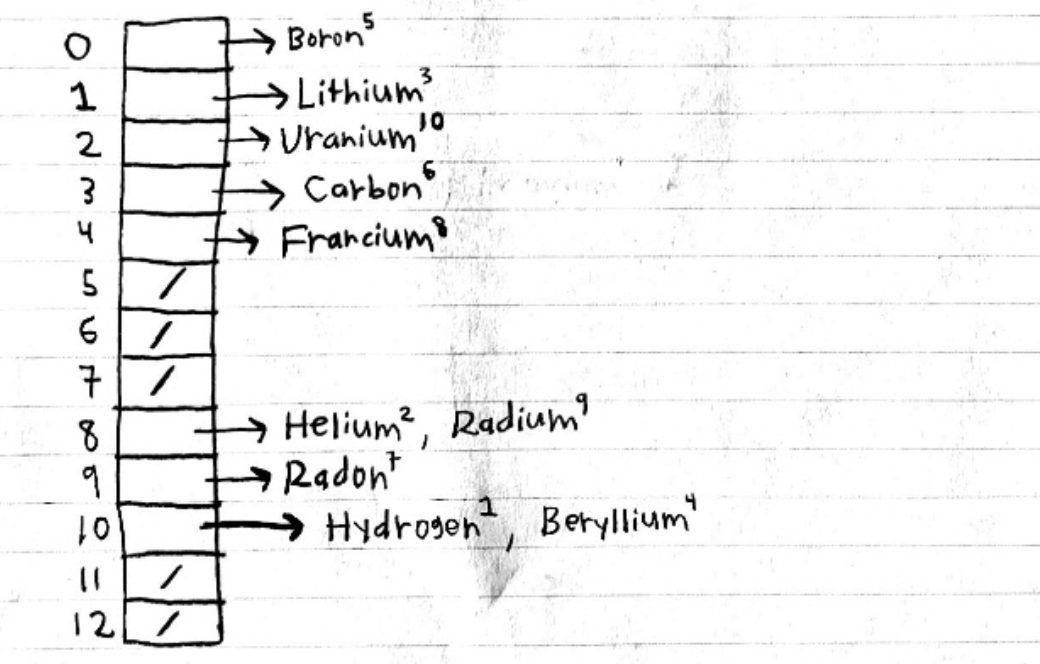 0 → Boron⁵
1 → Lithium³
2 → Uranium¹⁰
3 → Carbon⁶
4 → Francium⁸
5 /
6 /
7 /
8 → Helium², Radium⁹
9 → Radon⁷
10 → Hydrogen¹, Beryllium⁴
11 /
12 /